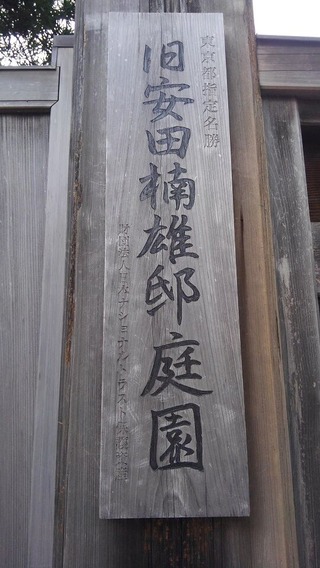 東京都指定名勝
旧安田楠雄邸庭園
財団法人日本ナショナルトラスト保護資産